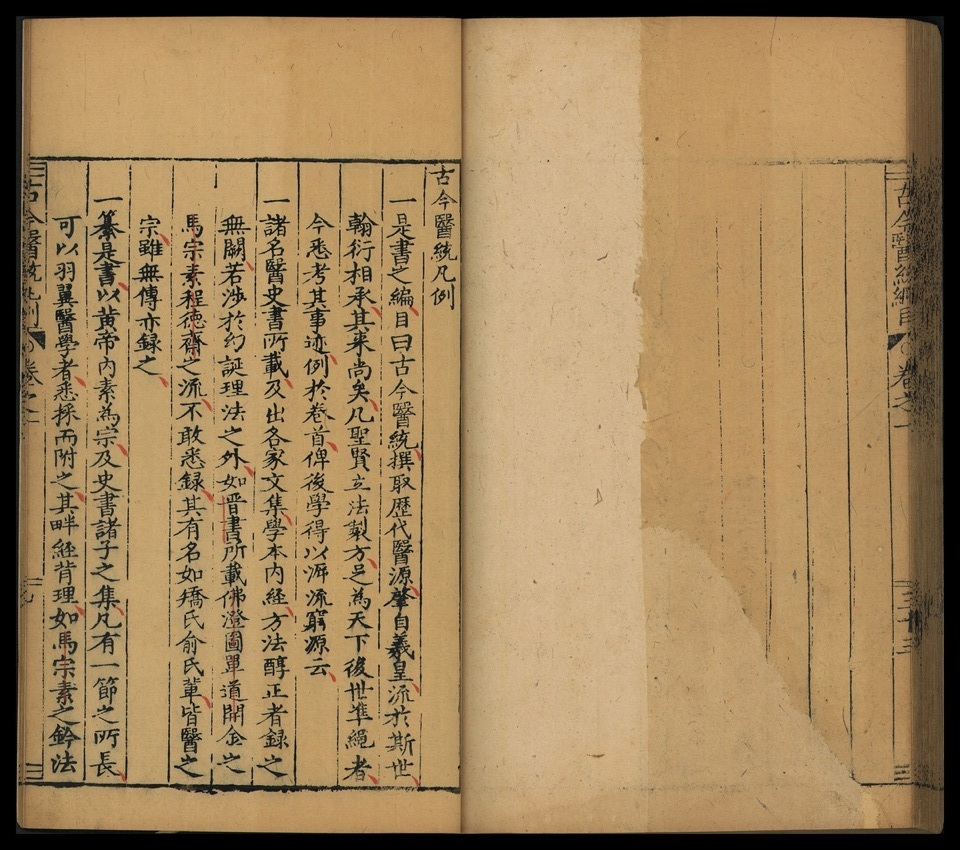 古今醫統綱目 卷之一
古今醫統凡例
一是書之編目曰古今醫統撰取歷代醫源肇自羲皇流於斯世
翰衍相承其来尚矣凡聖賢立法製方足為天下後世準繩者
今悉考其事迹例於卷首俾後學得以泝流窮源云
一諸名醫史書所載及出各家文集學本内經方法醇正者録之
無闕若涉於幻誕理法之外如晋書所載佛澄圖單道開金之
馬宗素程德齋之流不敢悉録其有名如矯氏俞氏輩皆醫之
宗雖無傳亦録之
一纂是書以黄帝内素為宗及史書諸子之集凡有一節之所長
可以羽翼醫學者悉採而附之其畔經背理如馬宗素之鈐法
古今醫統凡例 卷之一